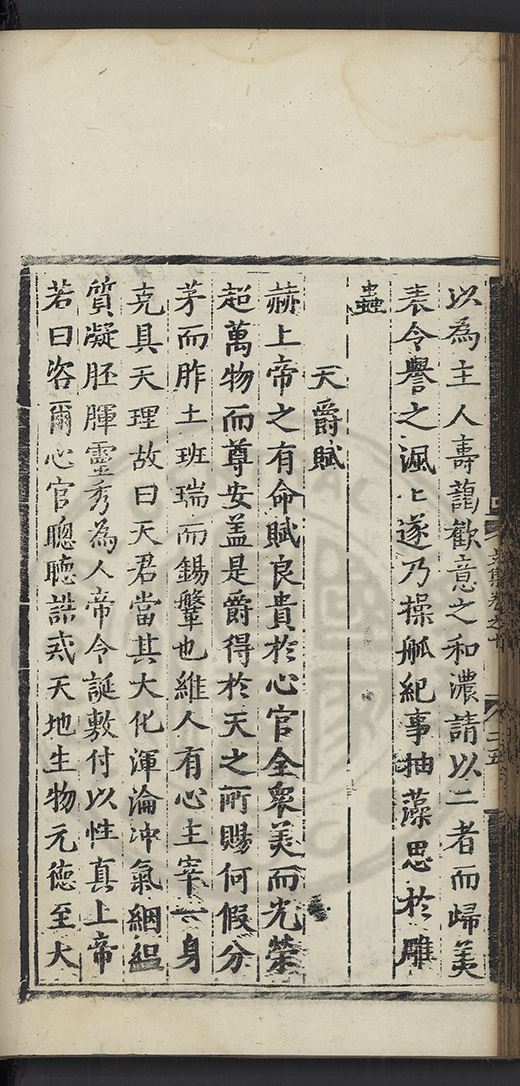 以為主人壽藹歡意之和濃請以二者而歸美
表令譽之渢渢遂乃操觚紀事抽藻思於雕
蟲
天爵賦
赫上帝之有命賦良貴於心官全衆美而光榮
超萬物而尊安盖是爵得於天之所賜何假分
茅而胙土班瑞而錫鞶也維人有心主宰一身
克具天理故曰天君當其大化渾淪冲氣絪縕
質凝胚腪靈秀為人帝令誕敷付以性真上帝
若曰咨爾心官聰聽誥戒天地生物元德至大